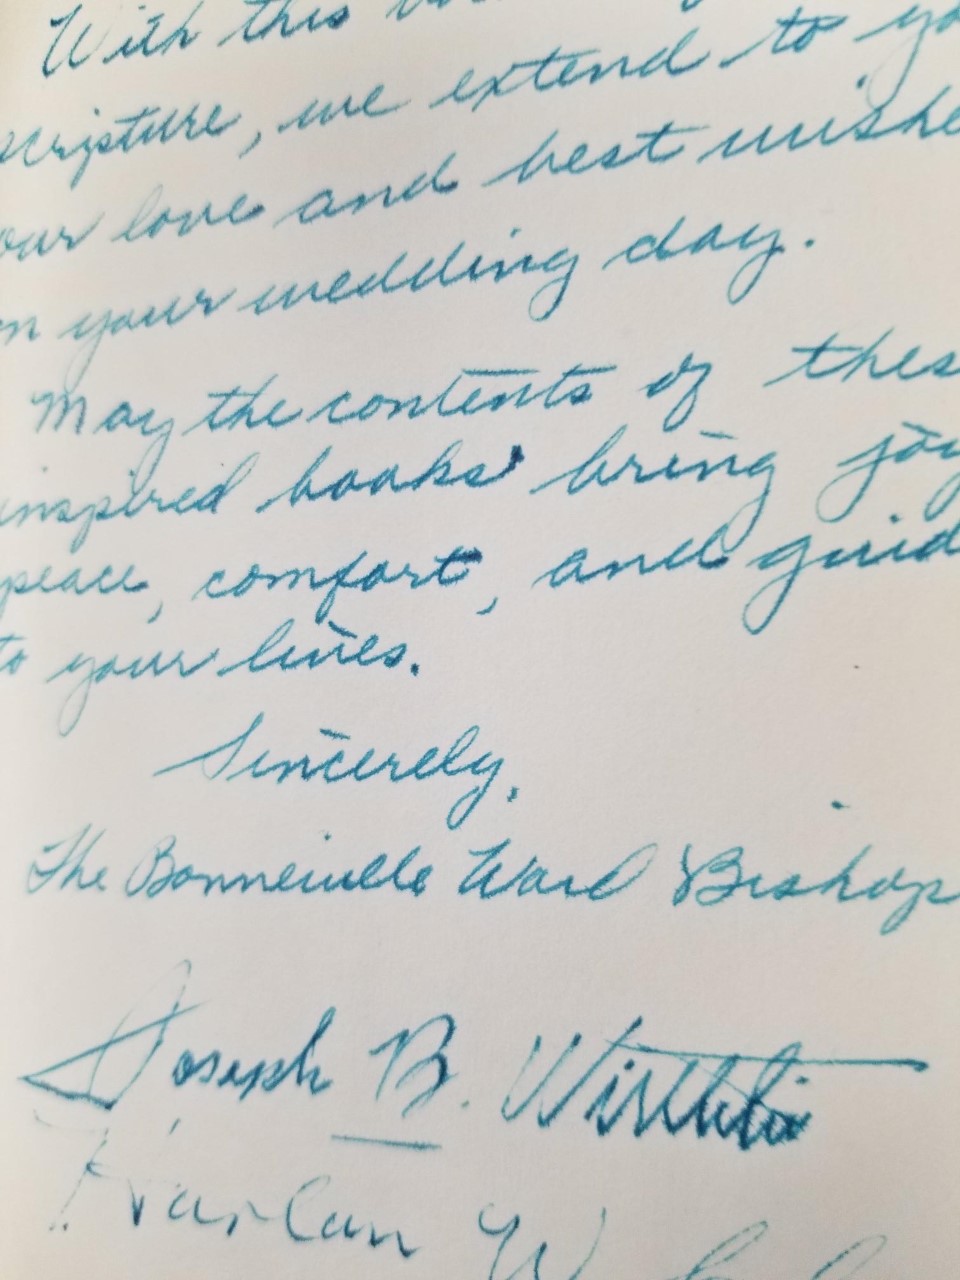 With this
scripture, we extend to yo
our love and best wishe
on your wedding day.
May the contents of thes
inspired books bring joy
peace, comfort, and guid
to your lives.
Sincerely,
The Bonneville Ward Bishop
Joseph B. Wirthlin
Harlan W